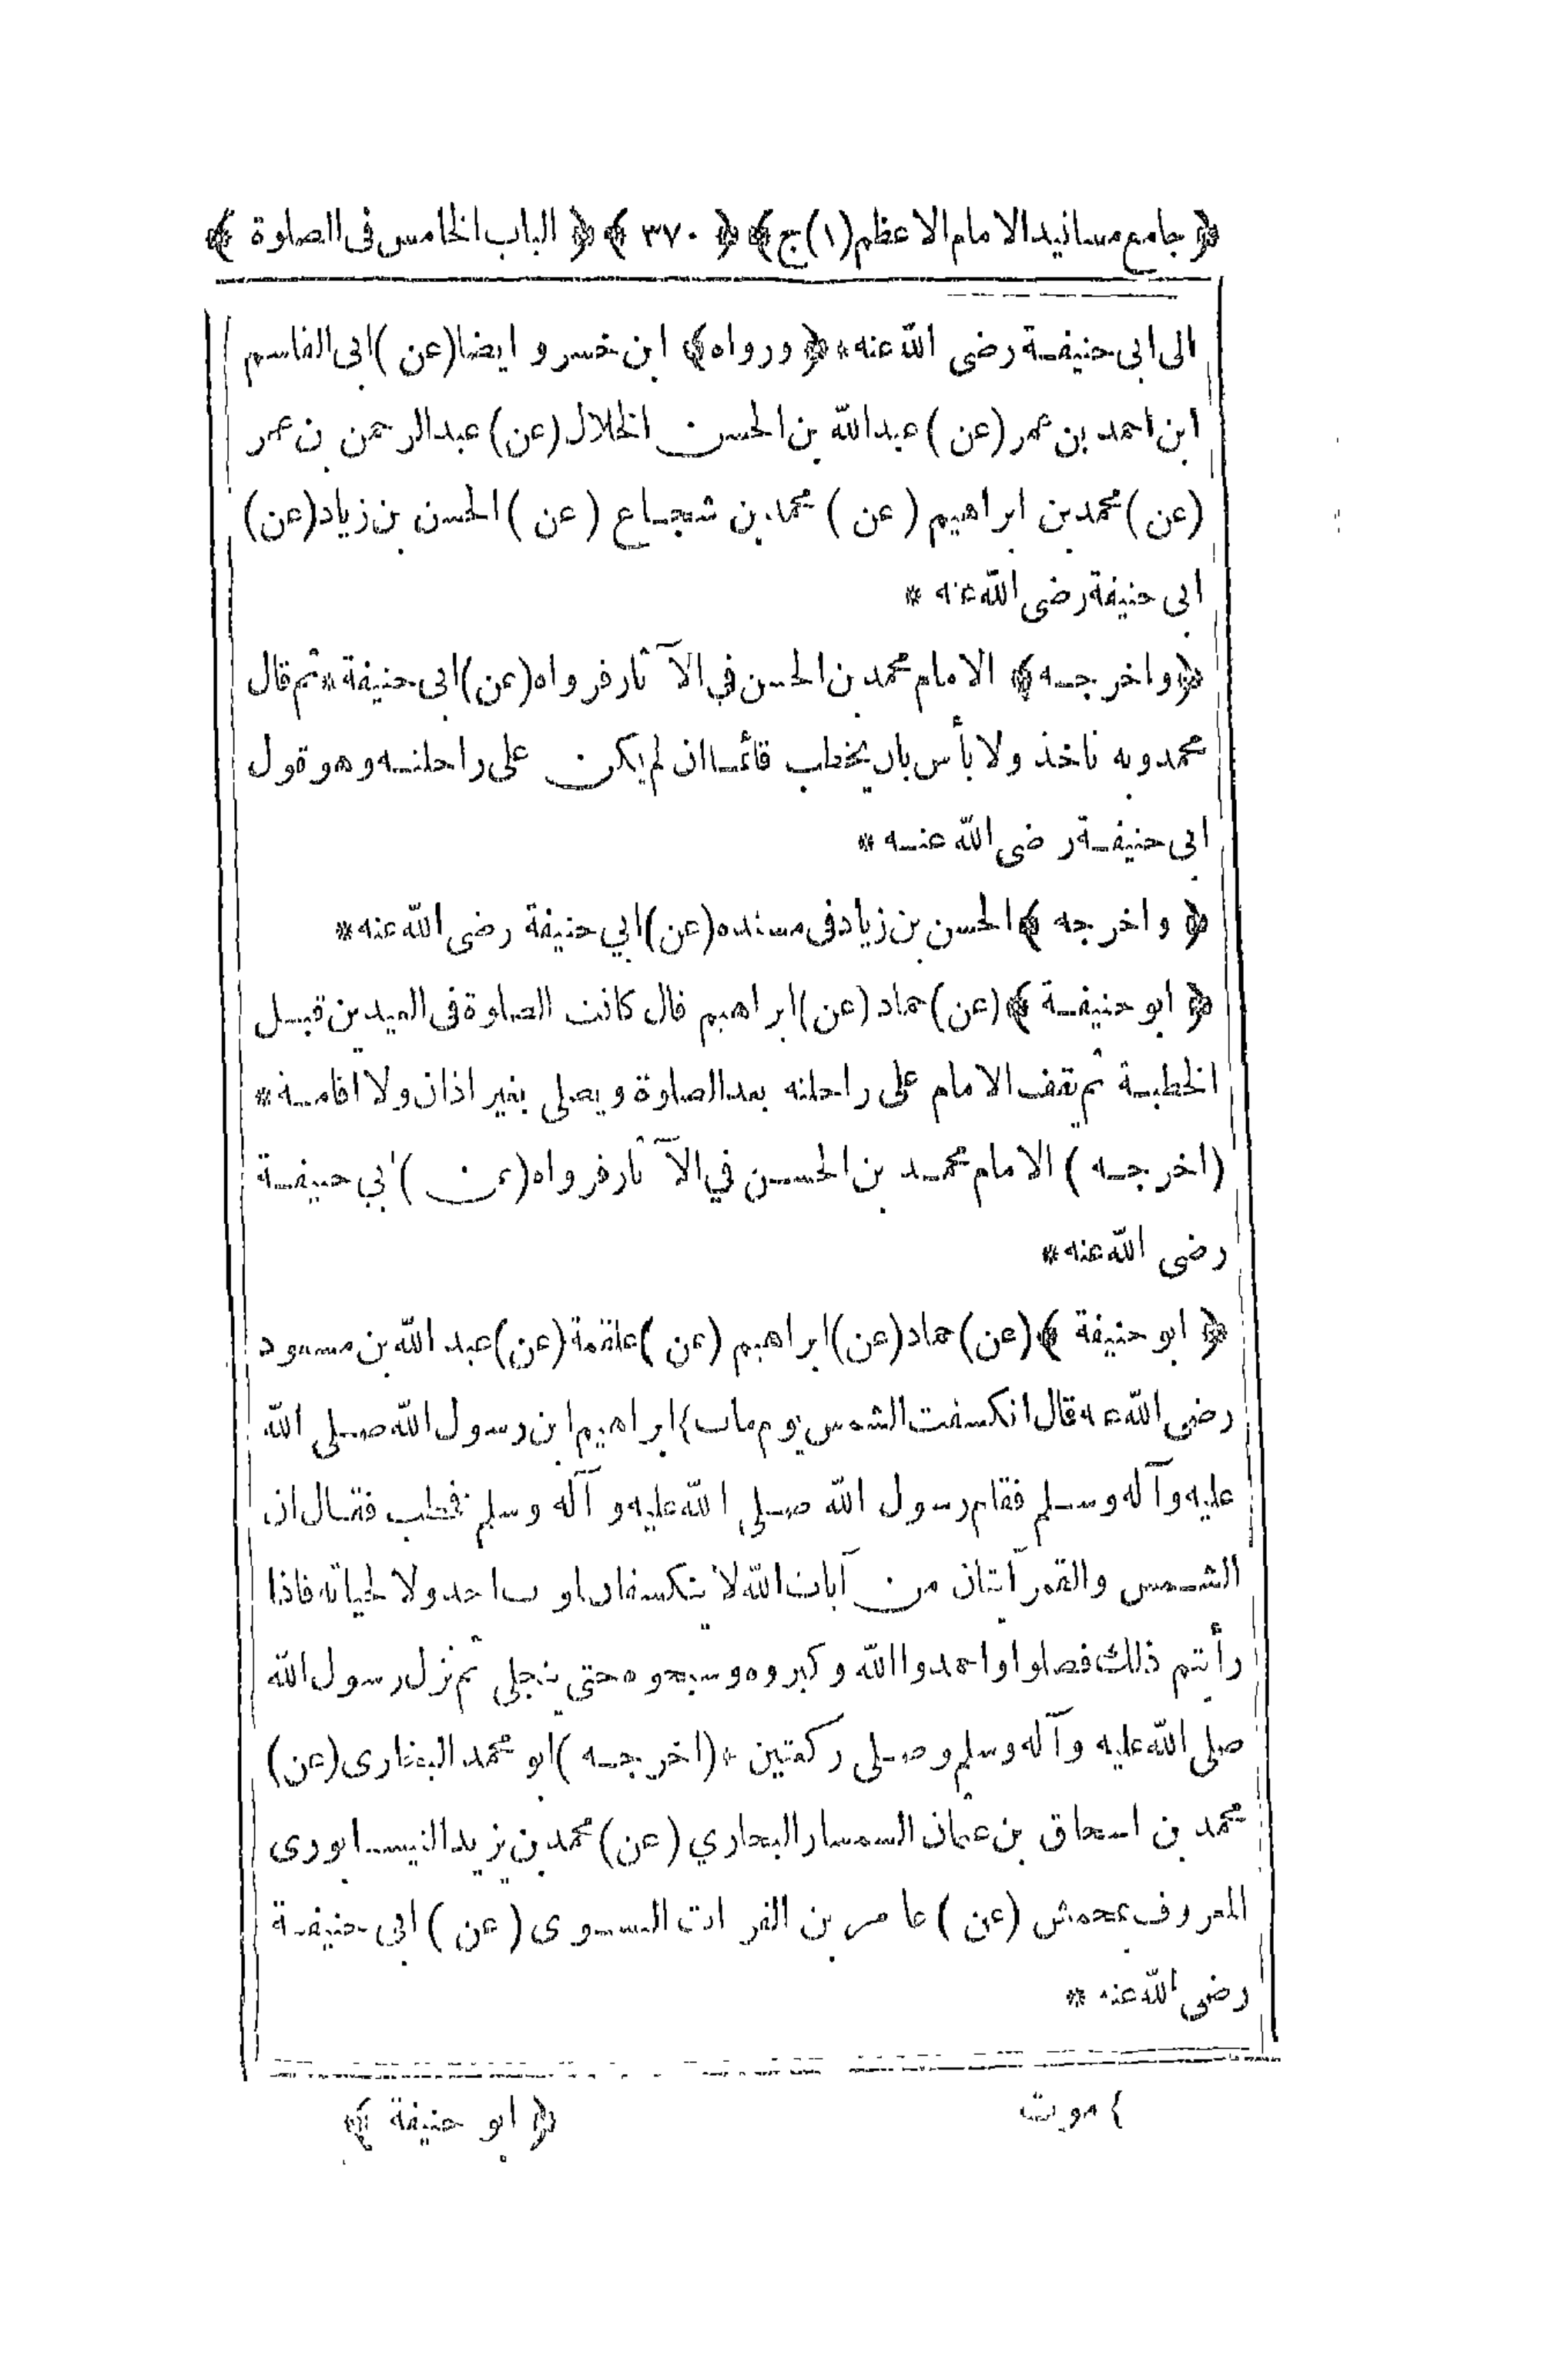 ﴿ جامع مسانيد الامام الاعظم (١) ج ﴾ ﴿ ٣٧٠ ﴾ ﴿ الباب الخامس فى الصلوة ﴾
الى ابى حنيفة رضى الله عنه * ﴿ ورواه ﴾ ابن خسرو ايضا (عن) ابى القاسم
ابن احمد بن عمر (عن) عبد الله بن الحسن الخلال (عن) عبد الرحمن بن عمر
(عن) محمد بن ابراهيم (عن) محمد بن شجاع (عن) الحسن بن زياد (عن)
ابى حنيفة رضى الله عنه *
﴿ واخرجه ﴾ الامام محمد بن الحسن في الآثار فرواه (عن) ابى حنيفة * ثم قال
محمد وبه ناخذ ولا بأس بان يخطب قائما ان لم يكن على راحلته وهو قول
ابى حنيفة رضى الله عنه *
﴿ واخرجه ﴾ الحسن بن زياد فى مسنده (عن) ابي حنيفة رضى الله عنه *
﴿ ابو حنيفة ﴾ (عن) حماد (عن) ابراهيم قال كانت الصلوة فى العيدين قبل
الخطبة ثم يقف الامام على راحلته بعد الصلوة ويصلى بغير اذان ولا اقامة *
(اخرجه) الامام محمد بن الحسن في الآثار فرواه (عن) ابي حنيفة
رضى الله عنه *
﴿ ابو حنيفة ﴾ (عن) حماد (عن) ابراهيم (عن) علقمة (عن) عبد الله بن مسعود
رضى الله عنه قال انكسفت الشمس يوم مات } ابراهيم ابن رسول الله صلى الله
عليه وآله وسلم فقام رسول الله صلى الله عليه وآله وسلم فخطب فقال ان
الشمس والقمر آيتان من آيات الله لا ينكسفان احد ولا لحياته فاذا
رأيتم ذلك فصلوا واحمدوا الله وكبروه وسبحوه حتى ينجلى ثم نزل رسول الله
صلى الله عليه وآله وسلم وصلى ركعتين * (اخرجه) ابو محمد البخارى (عن)
محمد بن اسحاق بن عثمان السمسار البخاري (عن) محمد بن يزيد النيسابورى
المعروف بمحمش (عن) عامر بن الفرات النسوى (عن) ابى حنيفة
رضى الله عنه *
} موت
﴿ ابو حنيفة ﴾